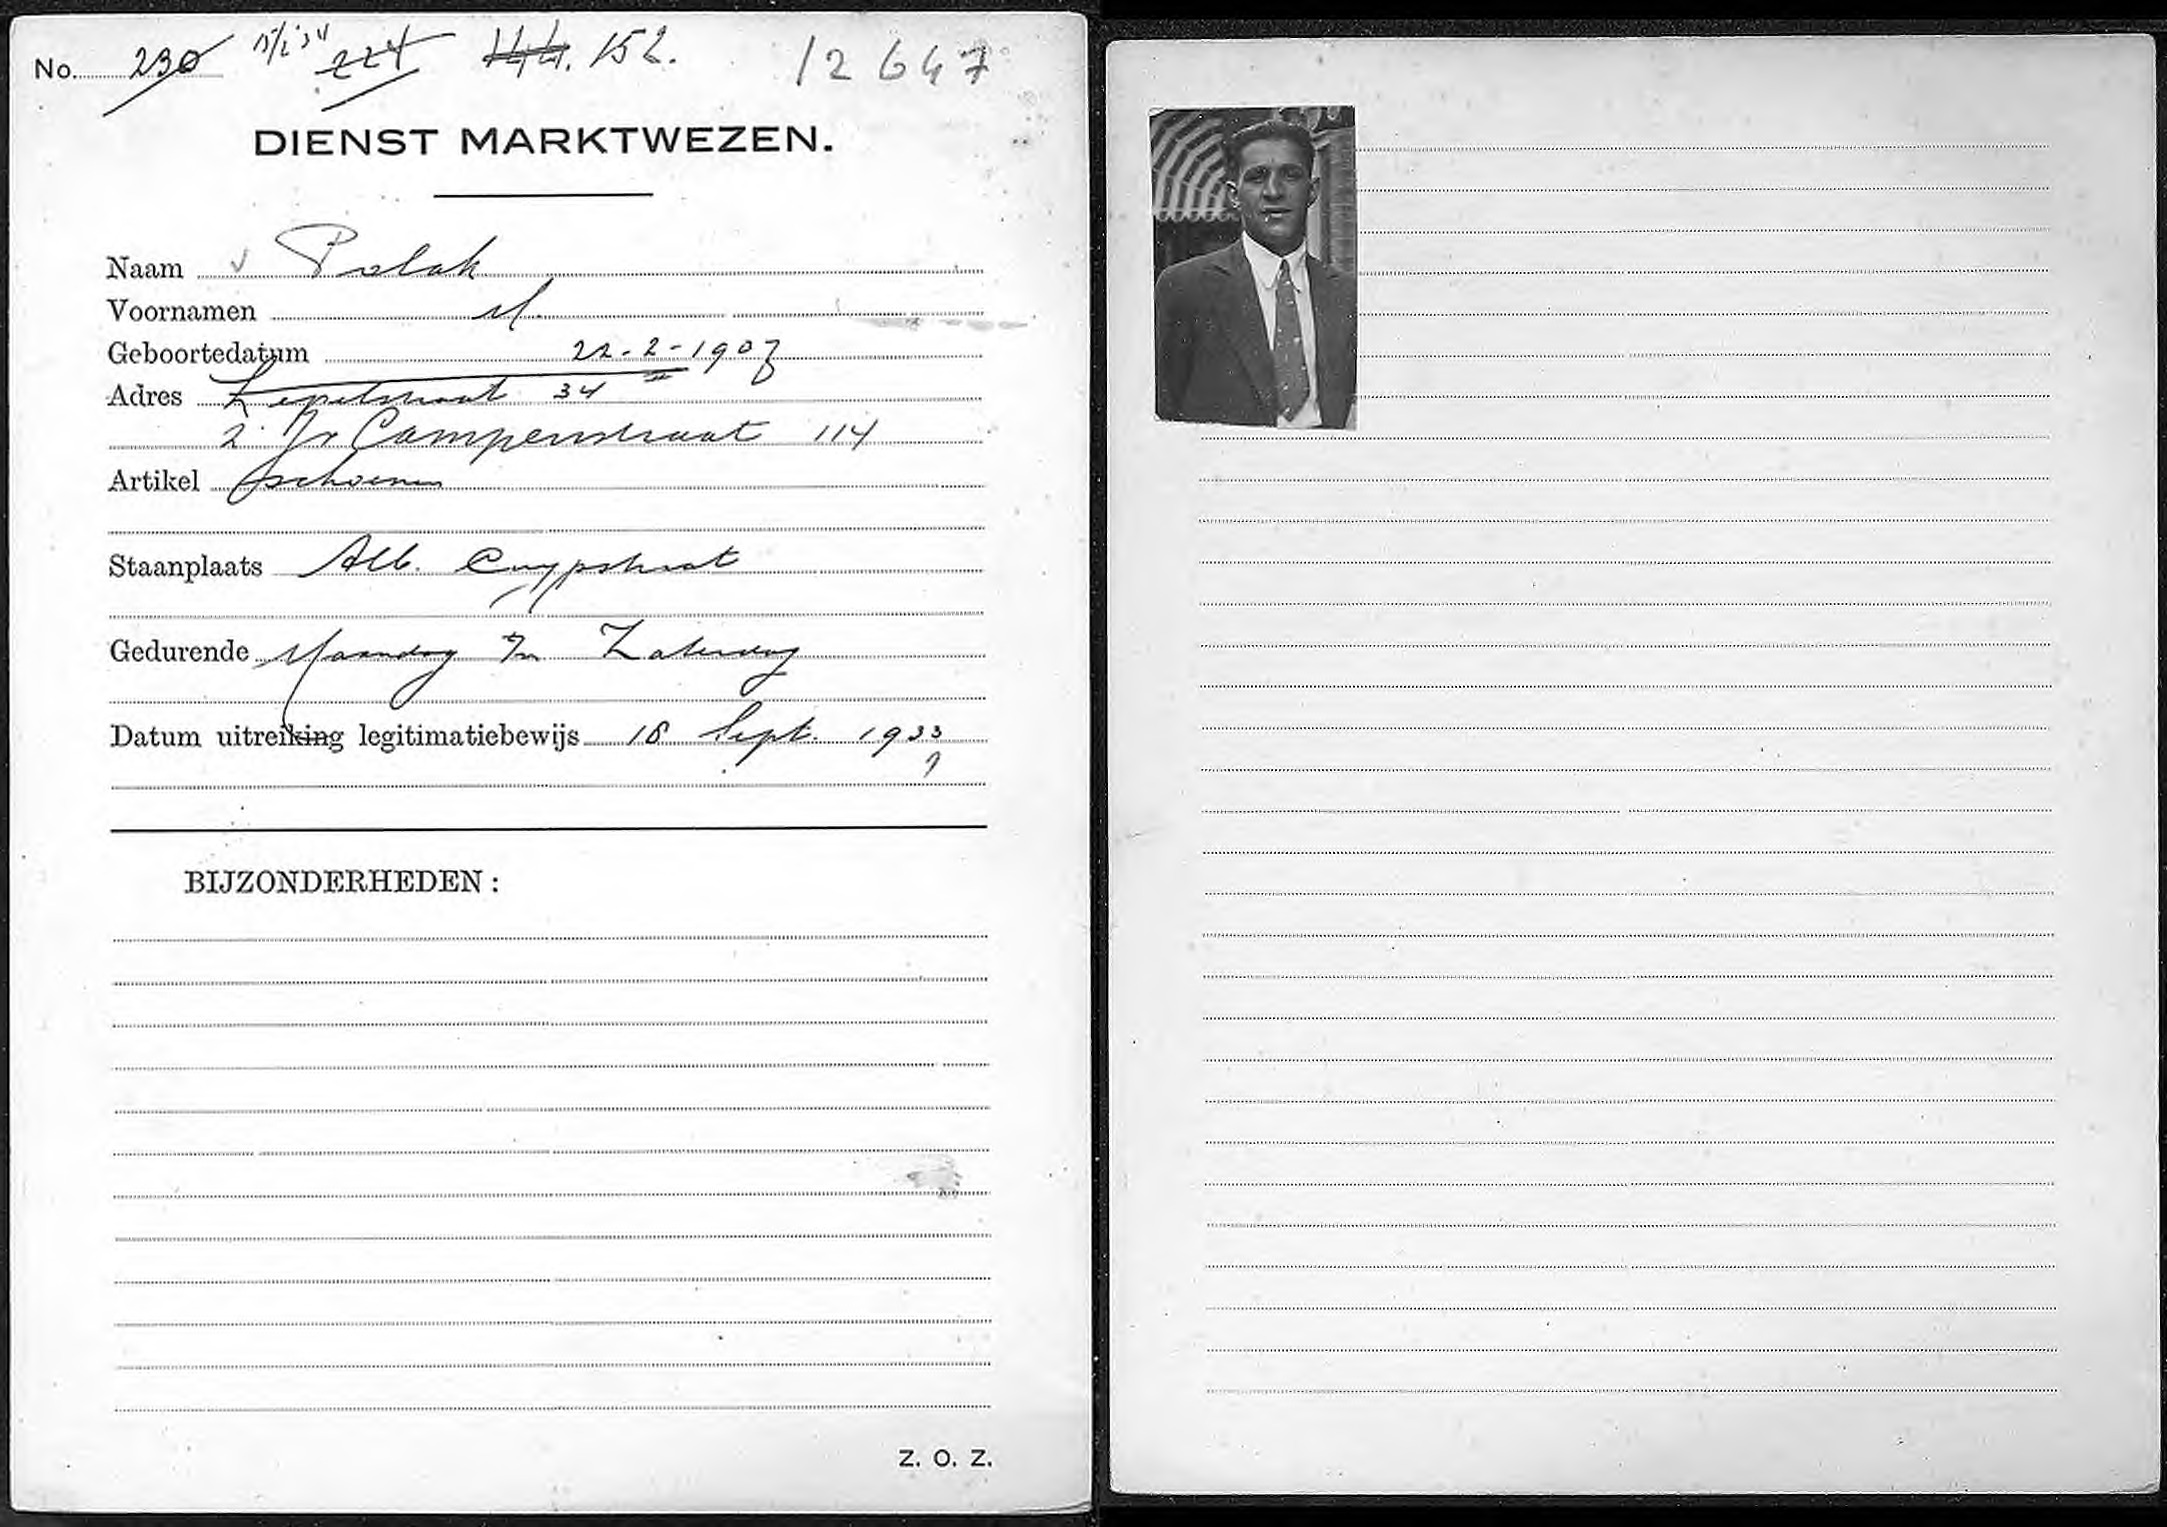 No. 230 15/2 '34 224 144. 152. 12647
DIENST MARKTWEZEN.
Naam v Polak
Voornamen M.
Geboortedatum 22-2-1907
Adres Lepelstraat 34 II
2e J. v. Campenstraat 114
Artikel schoenen
Staanplaats Alb. Cuypstraat
Gedurende Maandag t/m Zaterdag
Datum uitreiking legitimatiebewijs 18 Sept. 1933
BIJZONDERHEDEN:
Z. O. Z.